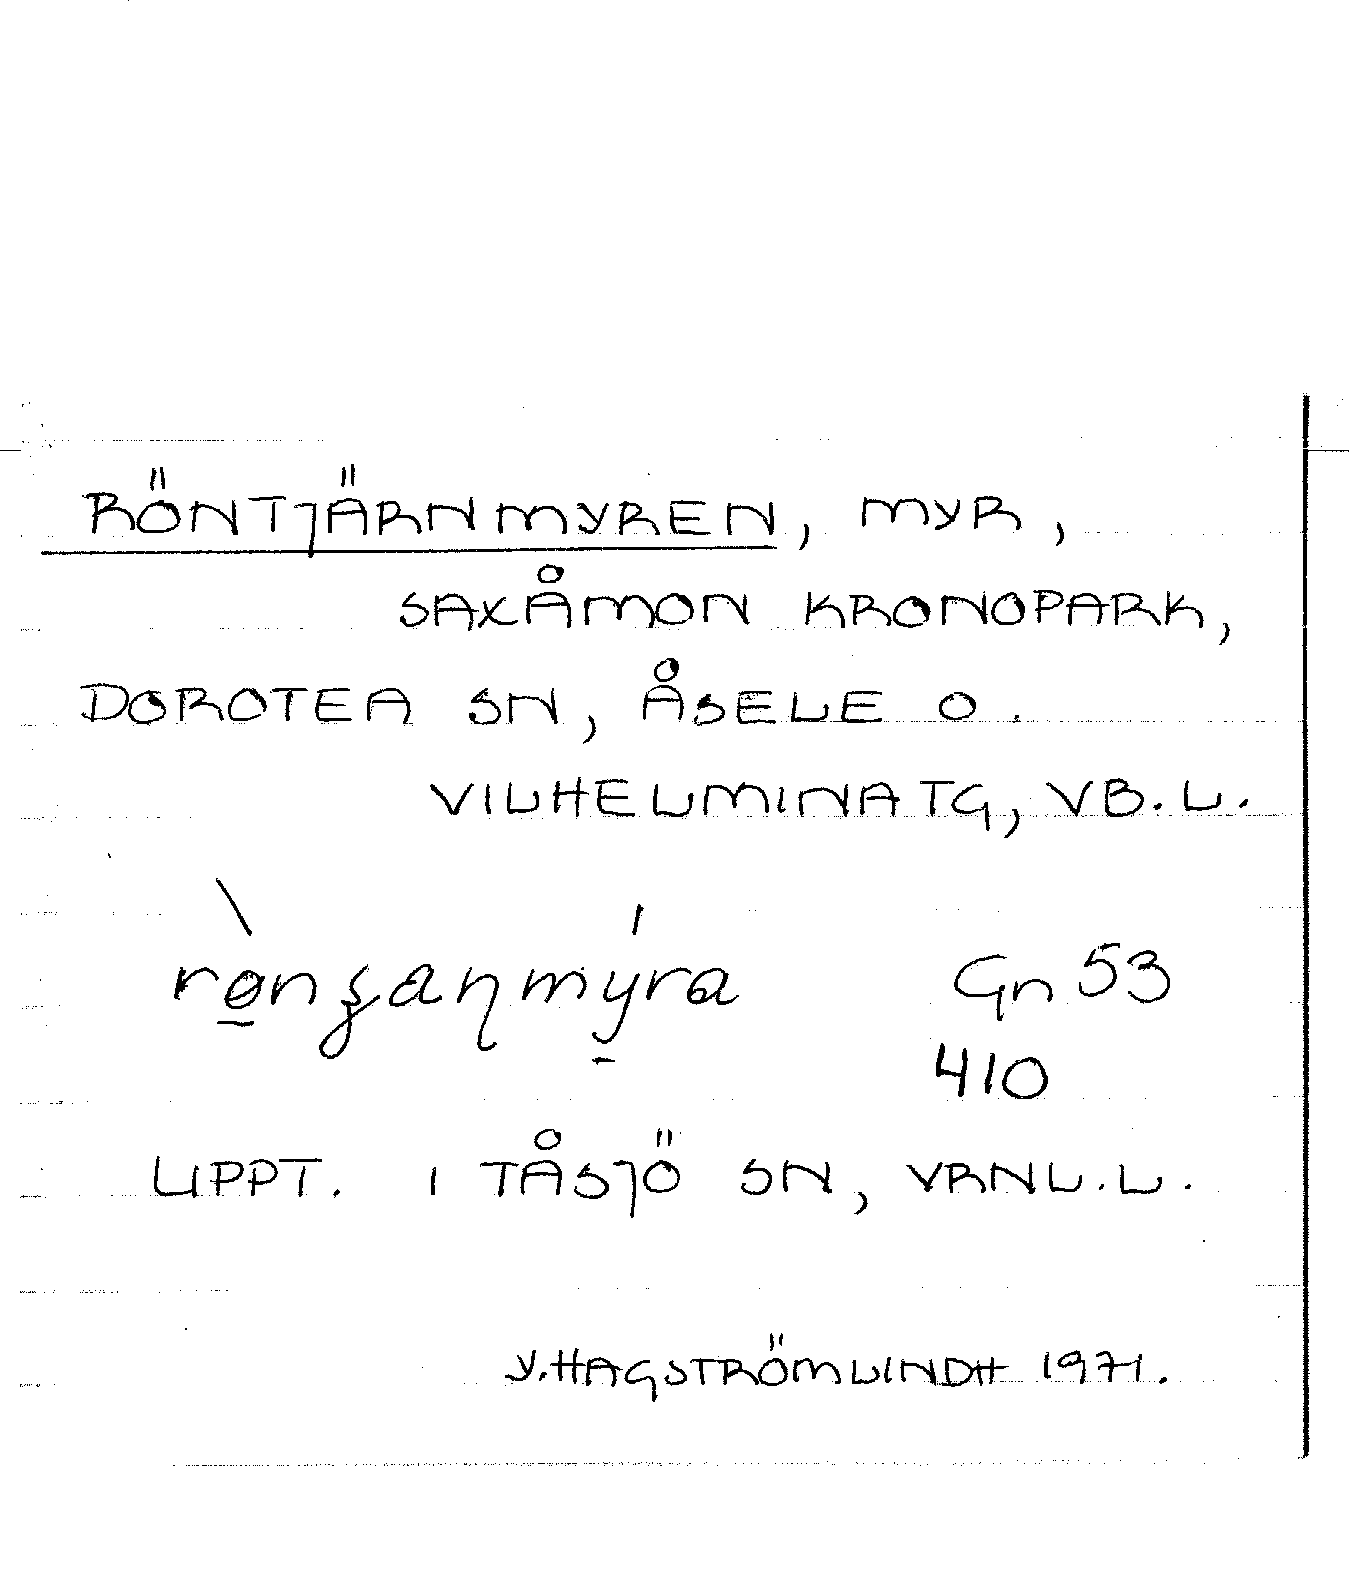 RÖNTJÄRNMYREN, MYR,
SAXÅMON KRONOPARK,
DOROTEA SN, ÅSELE O.
VILHELMINA TG, VB.L.
Gn 53
410
UPPT. I TÅSJÖ SN, VRNL.L.
Y. HAGSTRÖMLINDH 1971.